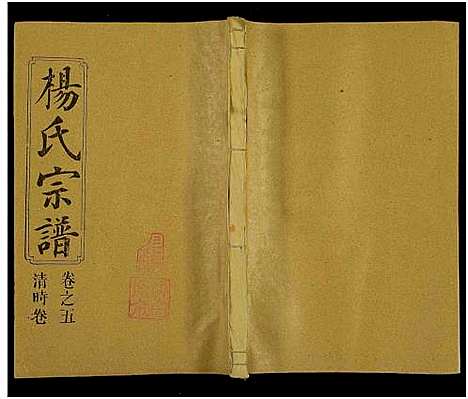 楊氏宗譜
卷之五
清時卷